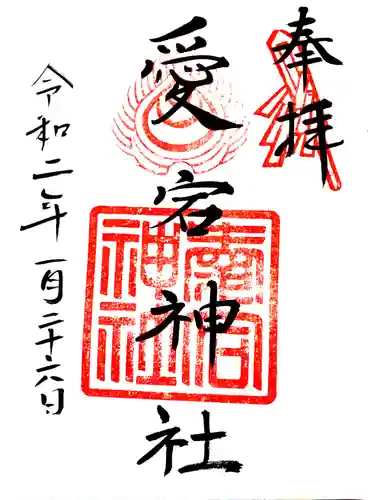 奉拝
愛宕神社
令和二年一月二十六日
愛宕
神社